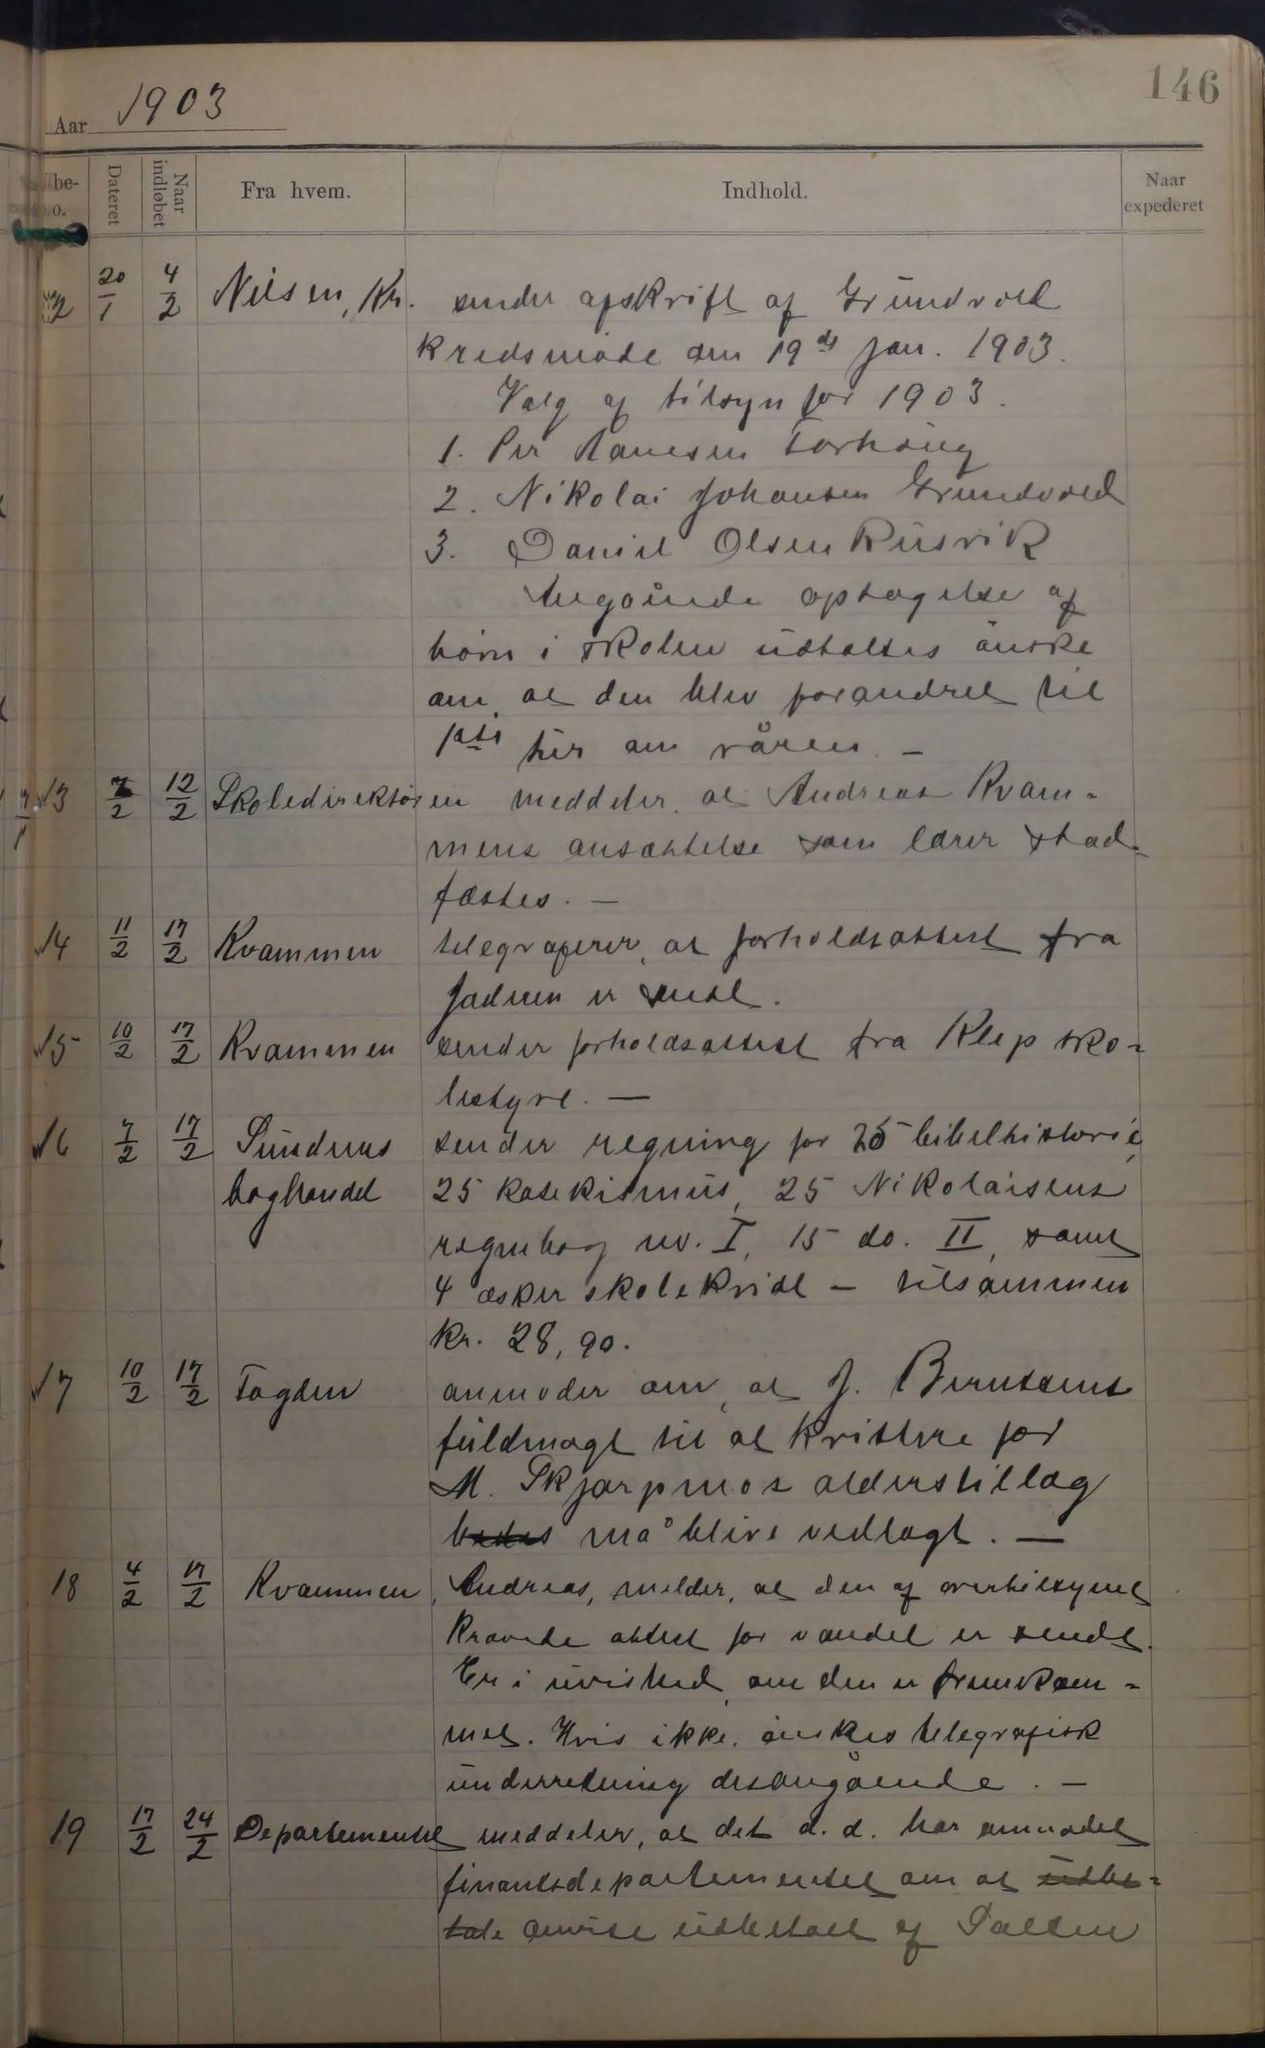 146
Aar 1903
be-
o.
Dateret
Naar indløbet
Fra hvem.
Indhold.
Naar expederet
12 20/1 4/2 Nilsen, Kr. sender afskrift af Grundvold
kredsmøde den 19de jan. 1903.
Valg af tilsyn for 1903.
1. Per Hansen Torhaug
2. Nikolai Johansen Grundvold
3. Daniel Olsen Rusvik
Angående optagelse af
børn i skolen udtaltes ønske
om, at den blev forandret til
her om våren. –
13 7/2 12/2 Skoledirektøren meddeler, at Andreas Kvam-
mens ansættelse som lærer stad-
fæstes. –
14 11/2 17/2 Kvammen telegraferer, at forholdsattest fra
Jædren er sendt.
15 10/2 17/2 Kvammen sender forholdsattest fra Klep sko-
lestyre. –
16 7/2 17/2 Sundnes sender regning for 25 bibelhistorie,
boghandel 25 katekismus, 25 Nikolaisens
regnebog nr. I, 15 do. II, samt
4 æsker skolekridt – tilsammen
kr. 28,90.
17 10/2 17/2 Fogden anmoder om, at J. Berntsens
fuldmagt til at kvittere for
M. Skjærpmos alderstillæg
bedes må blive vedlagt. –
18 4/2 17/2 Kvammen, Andreas, melder, at den af overtilsynet
krævede attest for vandel er sendt.
Er i uvished, om den er fremkom-
met. Hvis ikke, ønskes telegrafisk
underretning desangående. –
19 17/2 24/2 Departementet meddeler, at det d. d. har anmodet
finantsdepartementet om at udbe-
tale anvise udbetalt af Salten